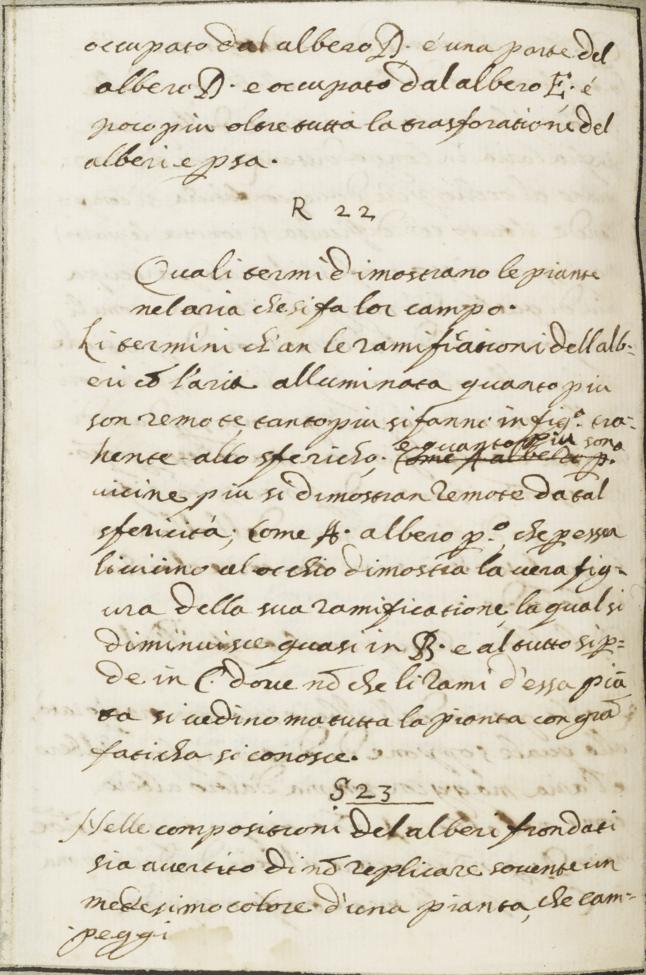 occupato dal albero D. é una parte del
albero D. e occupato dal albero E. é
poco piu oltre tutta la trasforatione del
alberi e psa.
R 22
Quali termi dimostrano le piante
nel aria che si fa lor campo.
Li termini ch'an le ramifi̅ationi dell alb=
eri cō l'aria alluminata quanto piu
son remote tanto piu si fanno in figa. tra=
hente allo sfericho. e quanto piu sono
vicine piu si dimostran remote da tal
sfericitá; come A. albero p.o, che per esser
li vicino al occhio dimostra la vera fig=
ura della sua ramificatione, la qual si
diminuisce quasi in B. e al tutto si p=
de in C. dove nō che li rami d'essa piā
ta si vedino ma tutta la pianta con grā
faticha si conosce.
S 23
Nelle compositioni del alberi frondati
sia avertito di nō replicare sovente un
medesimo colore d'una pianta, che cam=
peggi